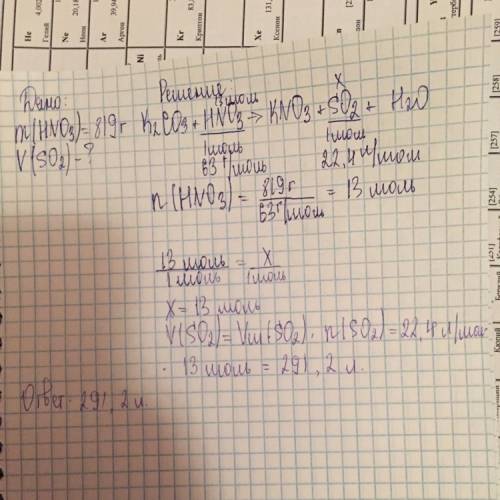 He
4,002
Гелий
Ne
20,18
Неон
Ar
39,94
Аргон
Ni
Kr
83,
Криптон
Xe
131,
Ксенон
[259]
[258]
[257]
[254]
[251]
Дано:
m(HNO3)=819 г
V(SO2)-?
Решение:
13 моль x
K2CO3 + HNO3 → KNO3 + SO2 + H2O
1моль 1моль
63 г/моль 22,4 л/моль
n(HNO3) = 819 г / 63 г/моль = 13 моль
13 моль / 1 моль = x / 1 моль
x = 13 моль
V(SO2) = Vm(SO2) · n(SO2) = 22,4 л/мол
· 13 моль = 291,2 л.
Ответ: 291,2 л.